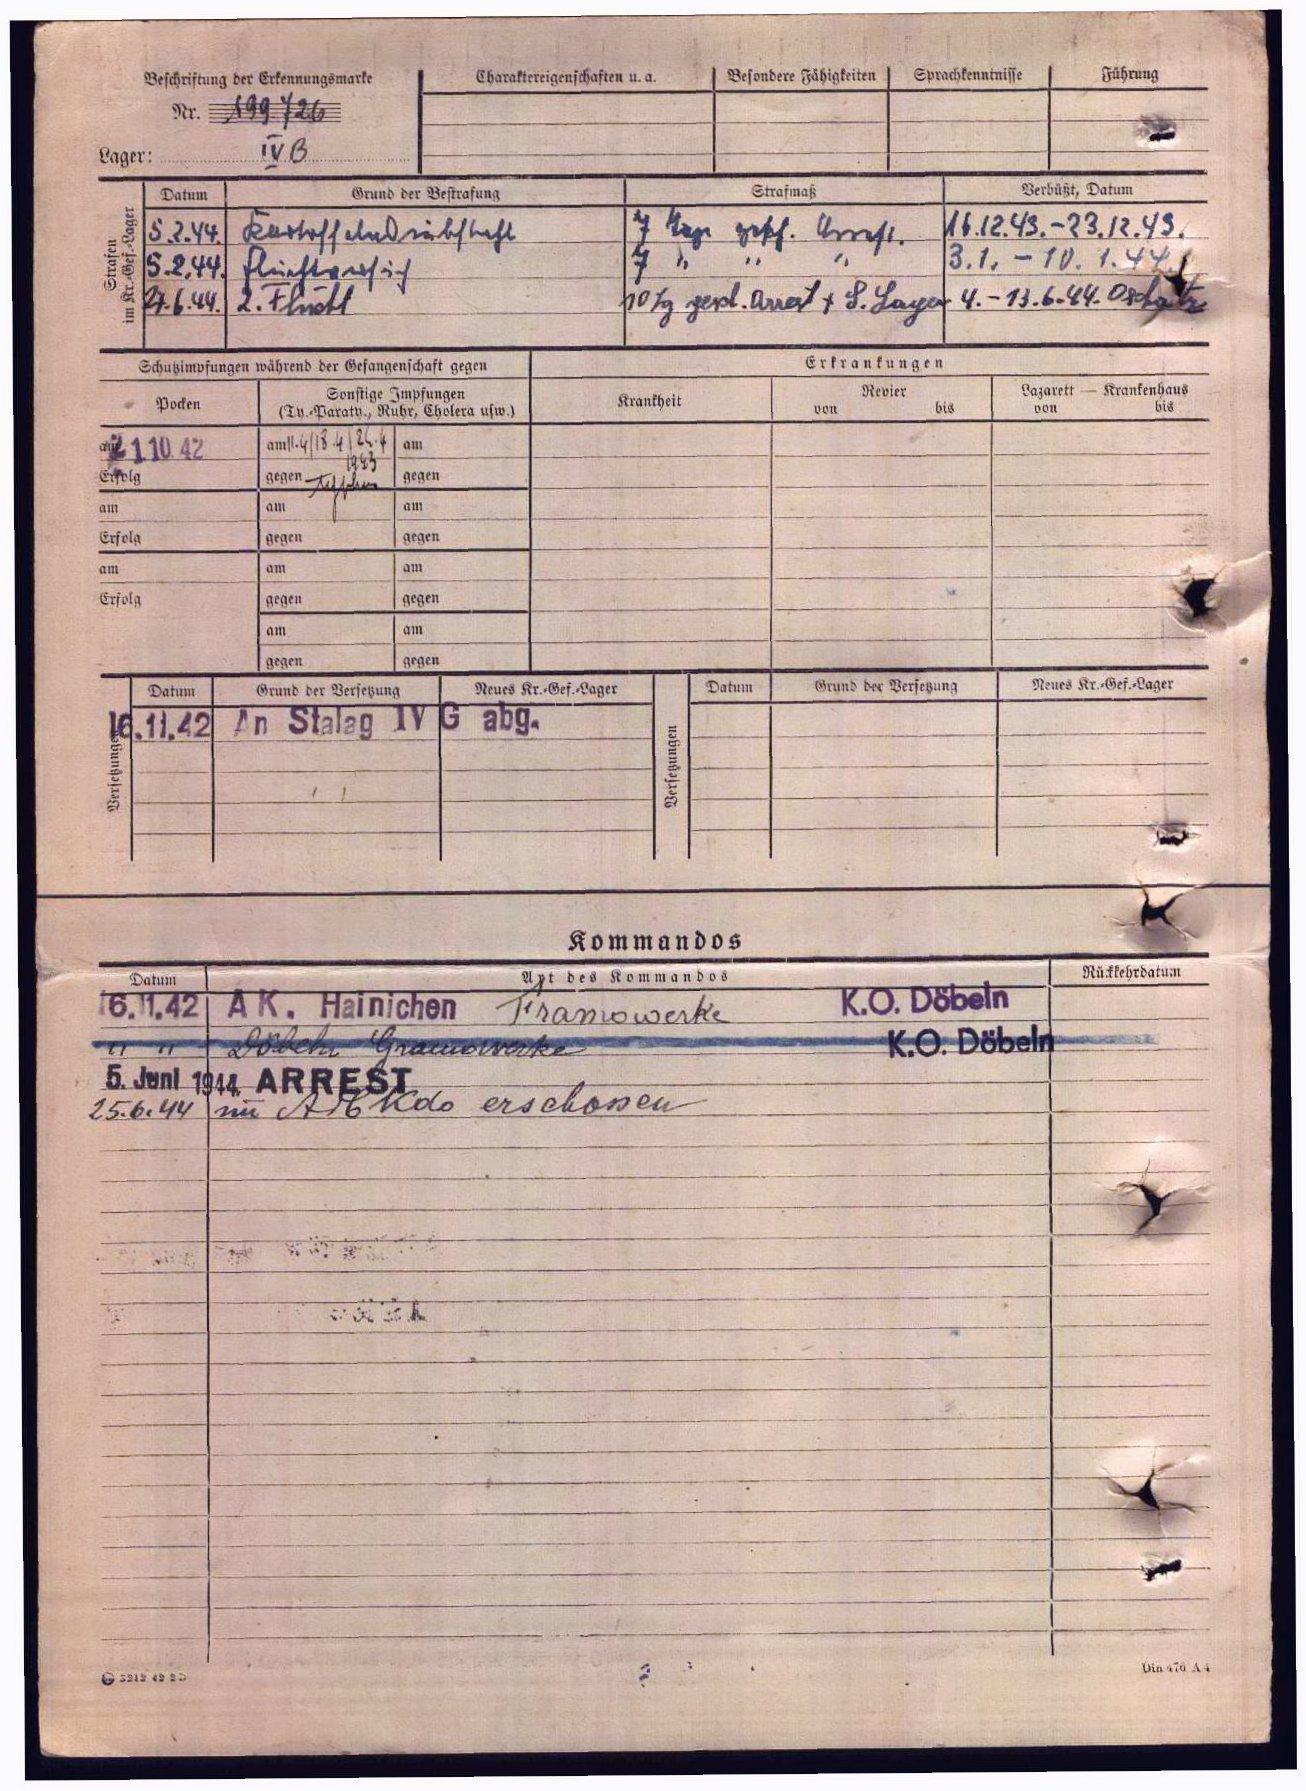 Beschriftung der Erkennungsmarke
Nr. 199726
Lager: IV B
Charaktereigenschaften u. a.
Besondere Fähigkeiten
Sprachkenntnisse
Führung
Strafen im Kr.-Gef.-Lager
Datum Grund der Bestrafung Strafmaß Verbüßt, Datum
5.2.44. Kartoffeldiebstahl 7 Tage gesch. Arrest. 16.12.43.-23.12.43.
5.2.44. Fluchtversuch 7 " " " 3.1. - 10. 1.44.
6.44. 2. Flucht 10 Tg gesch. Arrest + S. Lager 4.-13.6.44. Oschatz
Schutzimpfungen während der Gefangenschaft gegen
Erkrankungen
Pocken
Sonstige Impfungen
(Ty.-Paraty., Ruhr, Cholera usw.)
Krankheit
Revier
von bis
Lazarett — Krankenhaus
von bis
am 21.10.42 am 11.4/18.4/26.4 am
1943
Erfolg gegen Typhus gegen
am am am
Erfolg gegen gegen
am am am
Erfolg gegen gegen
am am
gegen gegen
Versetzungen
Datum Grund der Versetzung Neues Kr.-Gef.-Lager
16.11.42 An Stalag IV G abg.
Versetzungen
Datum Grund der Versetzung Neues Kr.-Gef.-Lager
Kommandos
Datum Art des Kommandos Rückkehrdatum
16.11.42 AK. Hainichen Framowerke K.O. Döbeln
" " Döbeln Gramowerke K.O. Döbeln
5. Juni 1944. ARREST
25.6.44 im Kdo erschossen
5212 42 2D
Din 476 A4